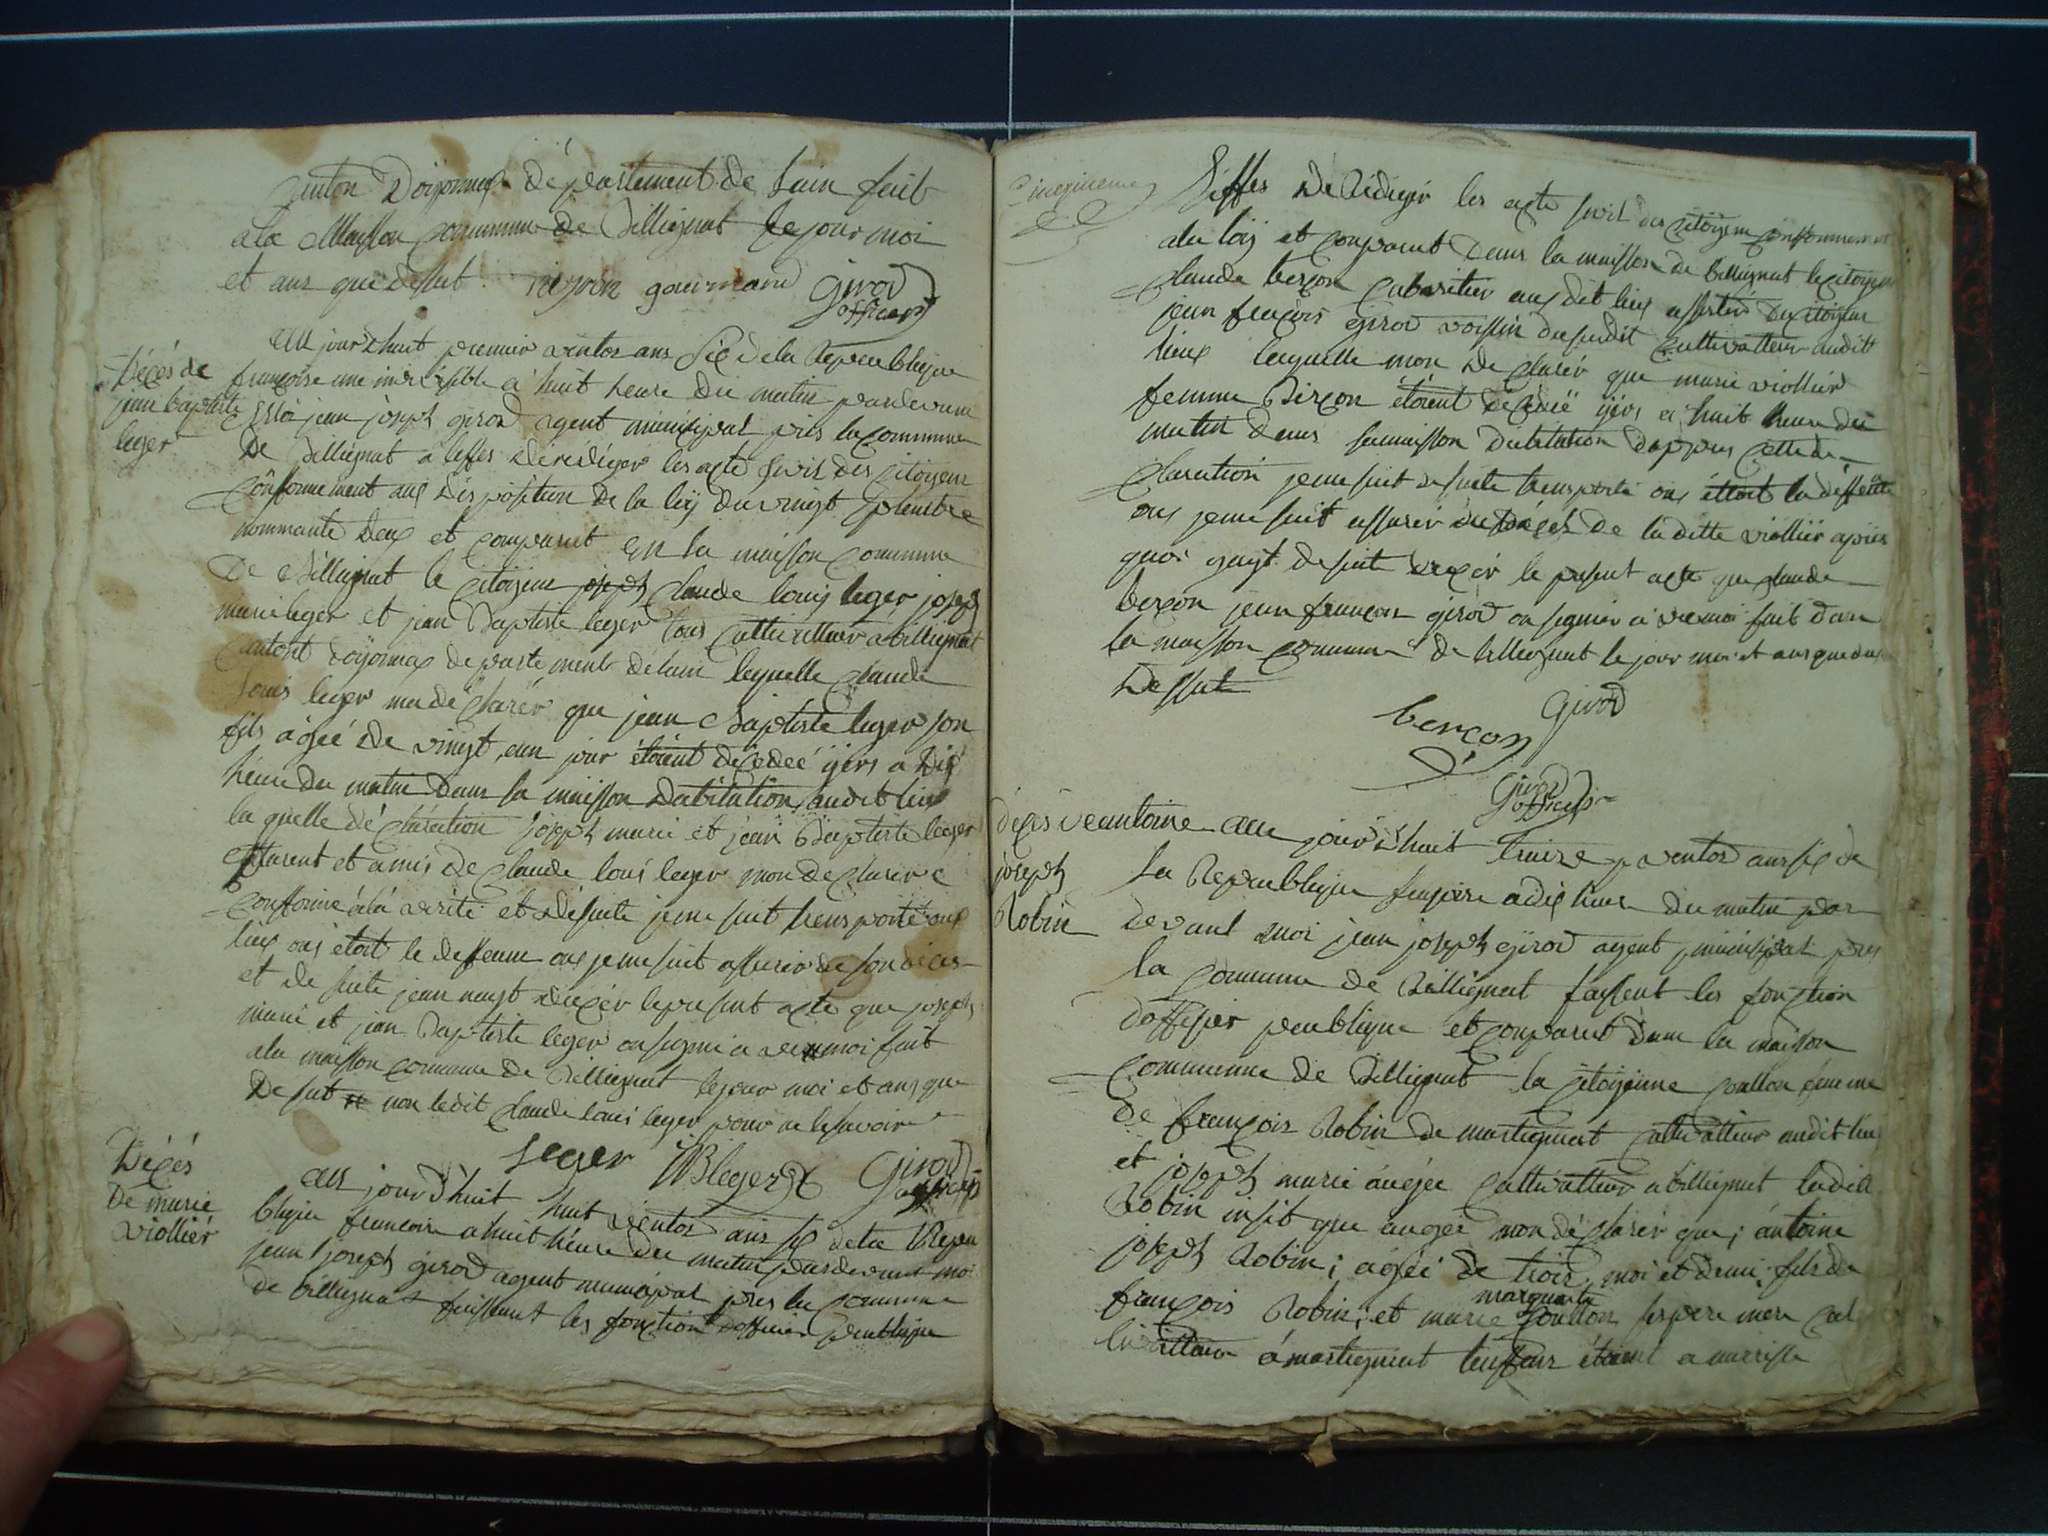 Canton Doyonnax département de Lain fait
a la Maisson commune de Billiegnat le jour moi
et ans que desut gourmand Girod
officier
Décés de
jean baptiste
leger
Au jourdhuit premier ventos ans six de la Republique
françoise une indivisible a huit heure du matin pardevant
moi jean joseph girod agent municipal près la commune
de Billiegnat a leffes de rediger les acte sivil des citoyens
conformement aux disposition de la loy du vingt septembre
nonante deux et comparut en la maisson commune
de Billiegnat le citoyen joseph claude louis leger joseph
marie leger et jean Baptiste leger tous cultivatteur a billiegnat
canton doyonnax departement de lain lequelle claude
Louis leger ma déclarér que jean Baptiste leger son
fils agée de vingt un jour étoient décedeé yers a dix
héure du matin dans sa maisson dabitation audit lieux
la quelle déclaration joseph marie et jean Baptiste leger
parent et amis de claude louis leger mon declarér é
conforme a la verité et de suite je me suit transporté aux
lieux ou etoit le deffeunt ou je me suit assurér de son décés
et de suite jean rengt drecér le present acte que joseph
marie et jean Baptiste leger on signié a vec moi fait
a la maisson commune de Billiegnat le jour moi et ans que
desut non ledit claude louis leger pour ne le savoir
Leger JB leger Girod
officier
Décés
de marie
viollier
Au jourdhuit huit ventos ans six de la Repu
blique francoise a huit héure du matin pardevant moi
jean joseph girod agent municipal pres la commune
de billiegnat faissant les fonction dofficier peublique
Leffes de Rédiger les acte sivil des citoyens conformement
a la loy et comparut dans la maisson de billiegnat le citoyen
claude berçon cabaretier aux dit lieux assisté du citoyen
jean françois girod voissin du sudit cultivatteur audit
lieux lequelle mon declarér que marie viollier
femme Birçon étoient decedée yers a huit heure du
matin dans sa maisson dabitation dappres cette de
claration je me suit de suite transporté ou étoit la deffeunte
ou je me suit assurér du decés de la ditte viollier apres
quoi jengt de suit drecér le present acte que claude
berçon jean francois girod on signiér a vec moi fait dans
la maisson commune de billiegnat le jour moi et ans que du
dessut
Girod
berçon
Girod
officier
décés de antoine
joseph
Robin
Au jourdhuit treize ventos ans six de
la Republique françoise a dix heure du matin par
devant moi jean joseph girod agent municipal pres
la commune de Billiegnat faissent les fonction
doffisier peublique et comparut dans la maison
commune de Billiegnat la citoyenne coullon femme
de françois Robin de martiegnat cultivatteur audit lieu
et joseph marie augée cultivatteur a billiegnat ladite
Robin insit que augée mon déclarér que; antoine
joseph Robin; agée de trois moi et demi; fils de
françois Robin; et marie marguerite coullon ses pere mere cul
tivatteur a martiegnat lenffans étoient a nurrisse